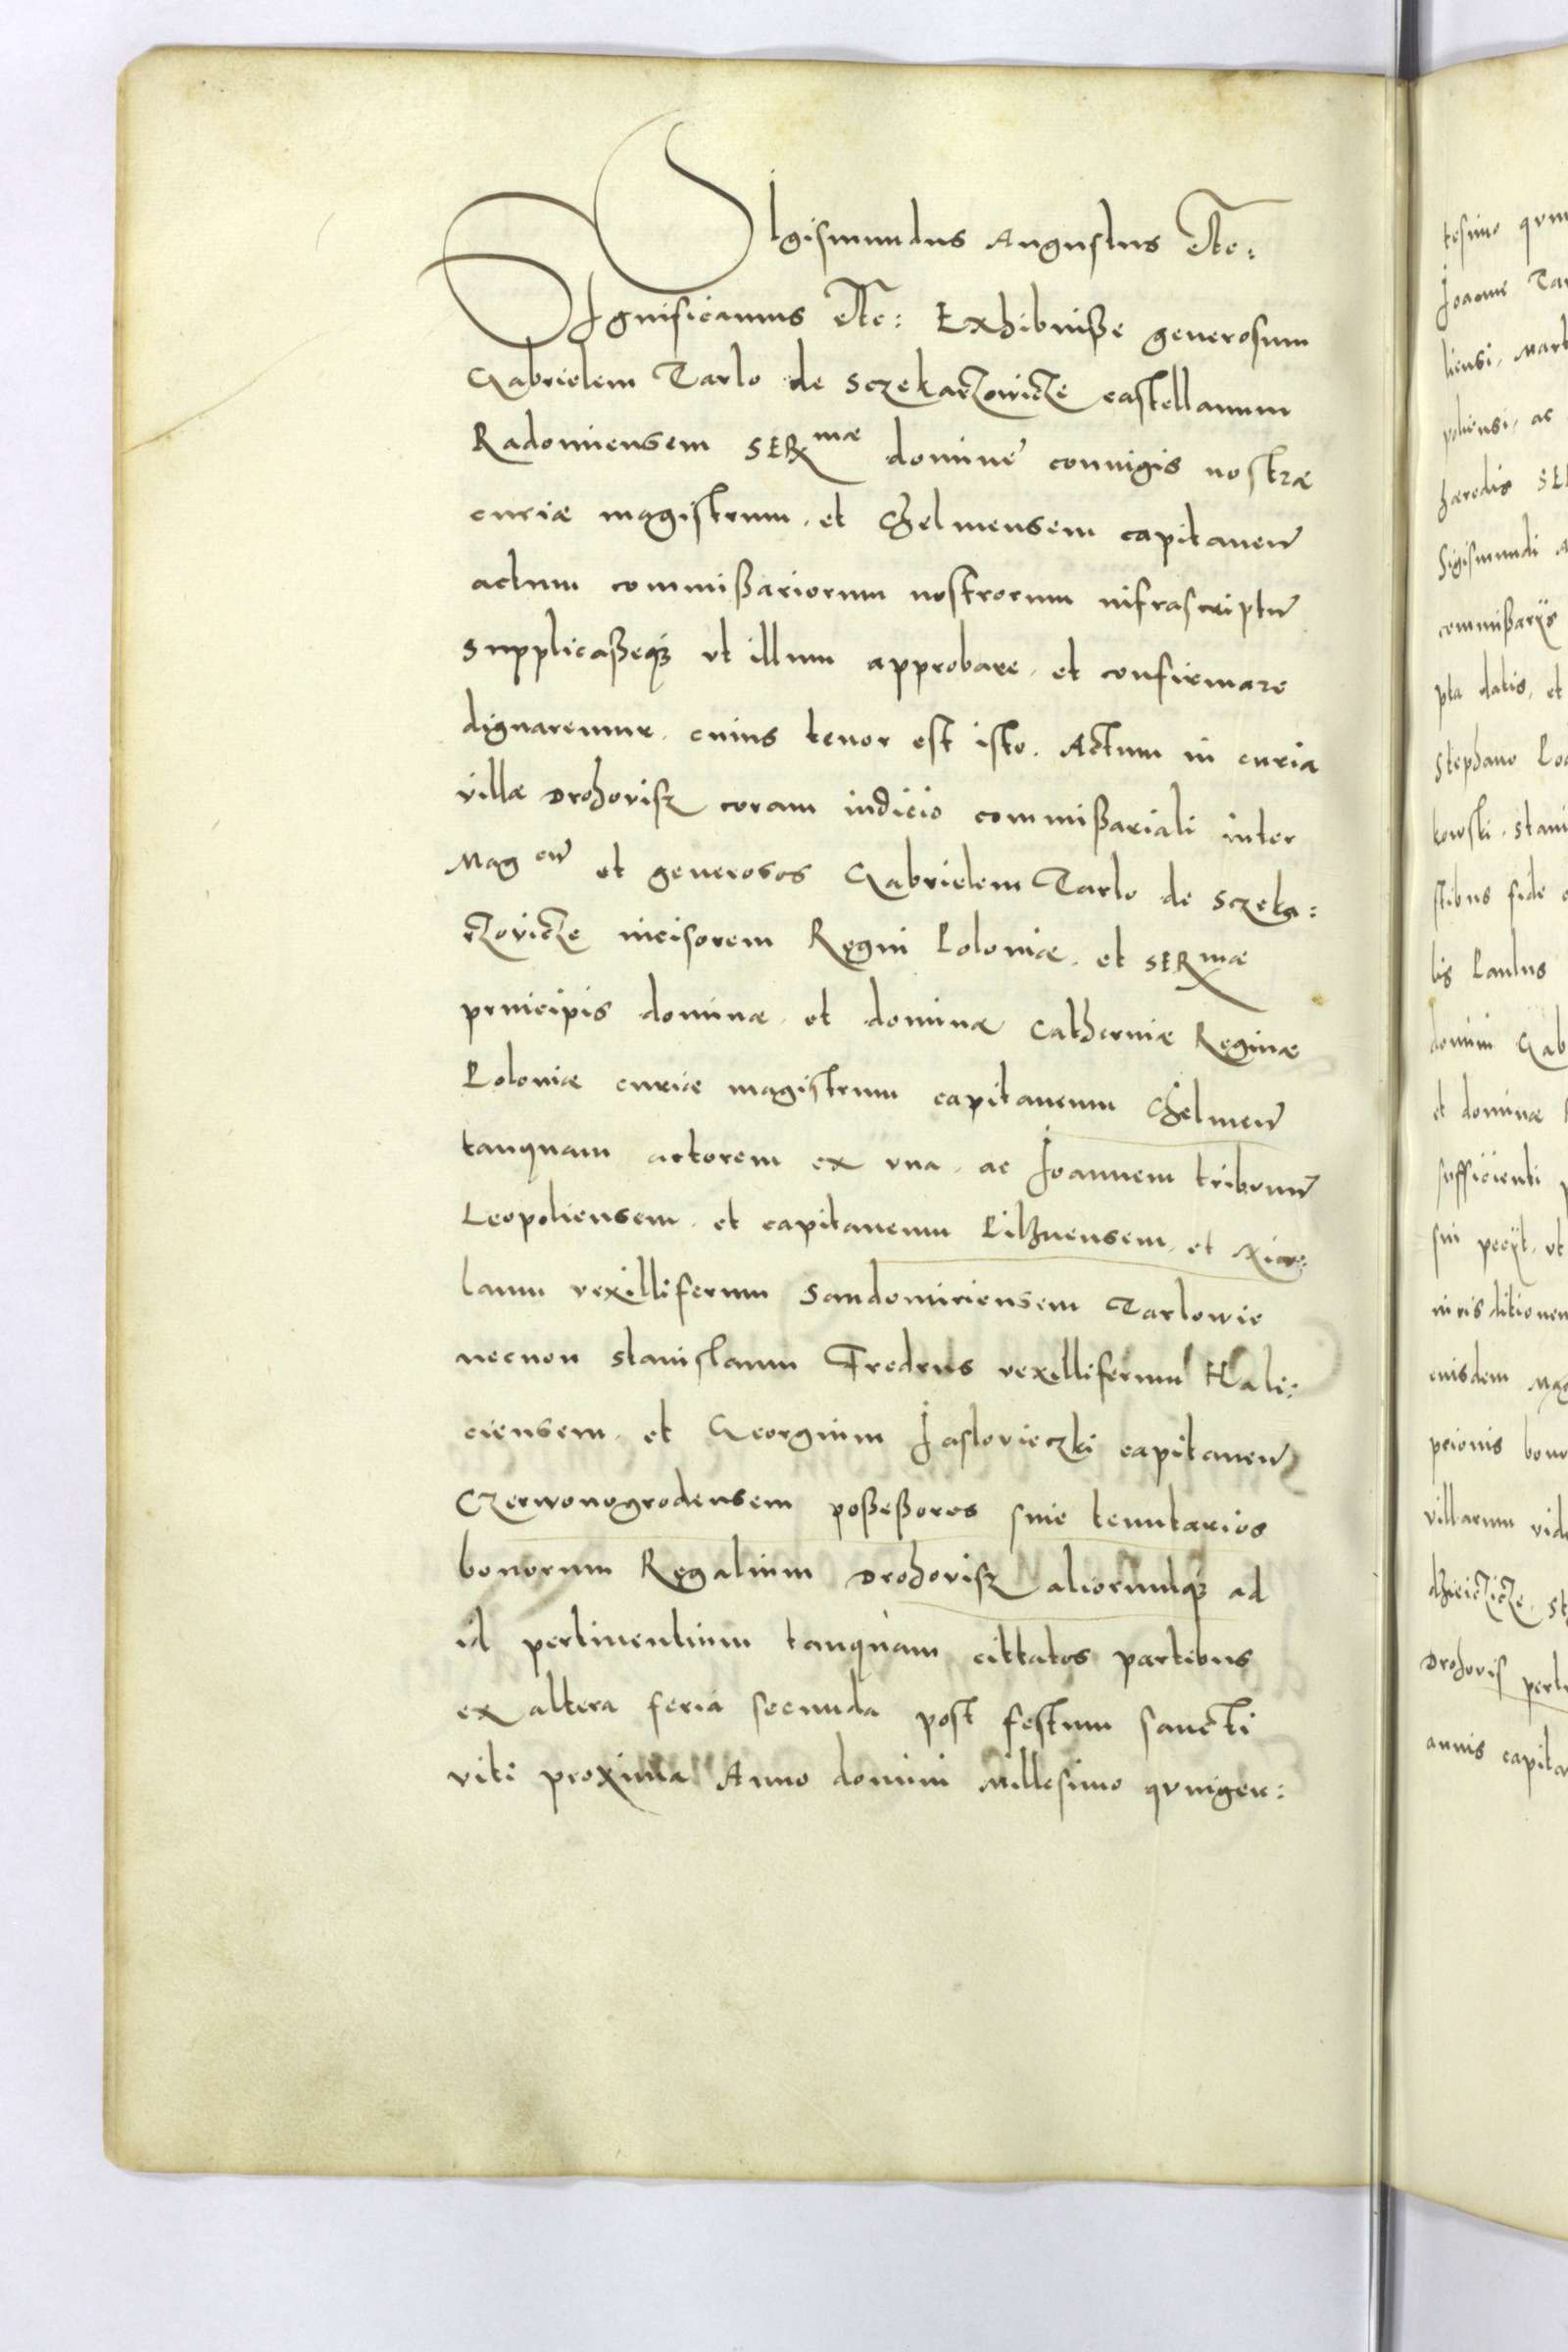 SIgismundus Augustus etc:
SIgnificamus etc: Exhibuiße generosum
Gabrielem Tarlo de Sczekarzowicze castellanum
Radomiensem SERmæ domine coniugis nostræ
curiæ magistrum, et Chelmensem capitaneu
actum commißariorum nostrorum infrascriptu
supplicaßeqz ut illum approbare, et confirmare
dignaremur, cuius tenor est iste. Actum in curia
villæ Drohovisz coram iudicio commißariali inter
Magcu et generosos Gabrielem Tarlo de Sczeka:
rzovicze incisorem Regni Poloniæ, et SERmæ
principis dominæ, et dominæ Catherinæ Reginæ
Poloniæ curiæ magistrum capitaneum Chelmen
tanquam actorem ex una, ac Joannem tribunu
Leopoliensem, et capitaneum Pilznensem, et
laum vexilliferum Sandomiriensem Tarlowie
necnon Stanislaum Fredrus vexilliferum Hali:
ciensem, et Georgium Jaslovieczki capitaneu
Czerwonogrodensem poßeßores sive tenutarios
bonorum Regalium Drohovisz aliorumqz ad
id pertinentium tanquam cittatos partibus
ex altera feria secunda post festum sancti
viti proxima Anno domini Millesimo quingen:
tesimo
Joanne
liensi, Mart
poliensi, ac
hæredis SER
Sigismundi
commißarijs
pta datis, et
Stephano
kowski, Stani
stibus fide
lis Paulus
domini Gab
et dominæ
sufficienti
sui pecijt, ut
iurisditionem
eiusdem Mag
villarum
Drohovis
annis capita